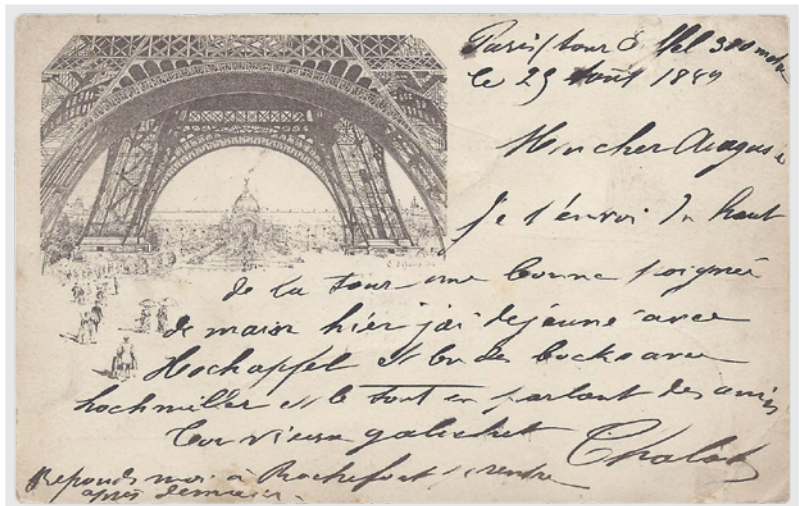 Paris/tour Eiffel 300 mètr
le 23 août 1889
Mon cher Auguste
Je t'envoi du haut
de la tour une bonne poignée
de main hier j'ai dejeuné avec
Hochapfel et bu des bocks avec
hochmiller et le tout en parlant des amis
Ton vieux
Reponds moi à Rochefort
après demain.